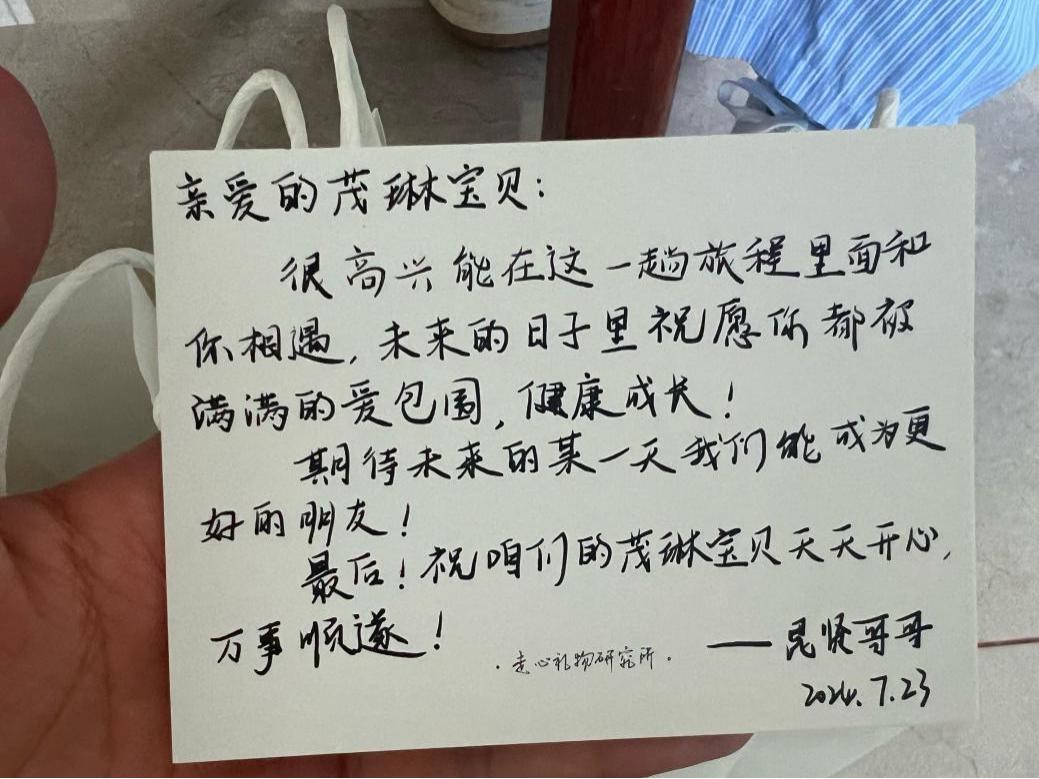 亲爱的茂琳宝贝：
很高兴能在这一趟旅程里面和
你相遇，未来的日子里祝愿你都被
满满的爱包围，健康成长！
期待未来的某一天我们能成为更
好的朋友！
最后！祝咱们的茂琳宝贝天天开心，
万事顺遂！
——昆贤哥哥
·走心礼物研究所·
2024.7.23